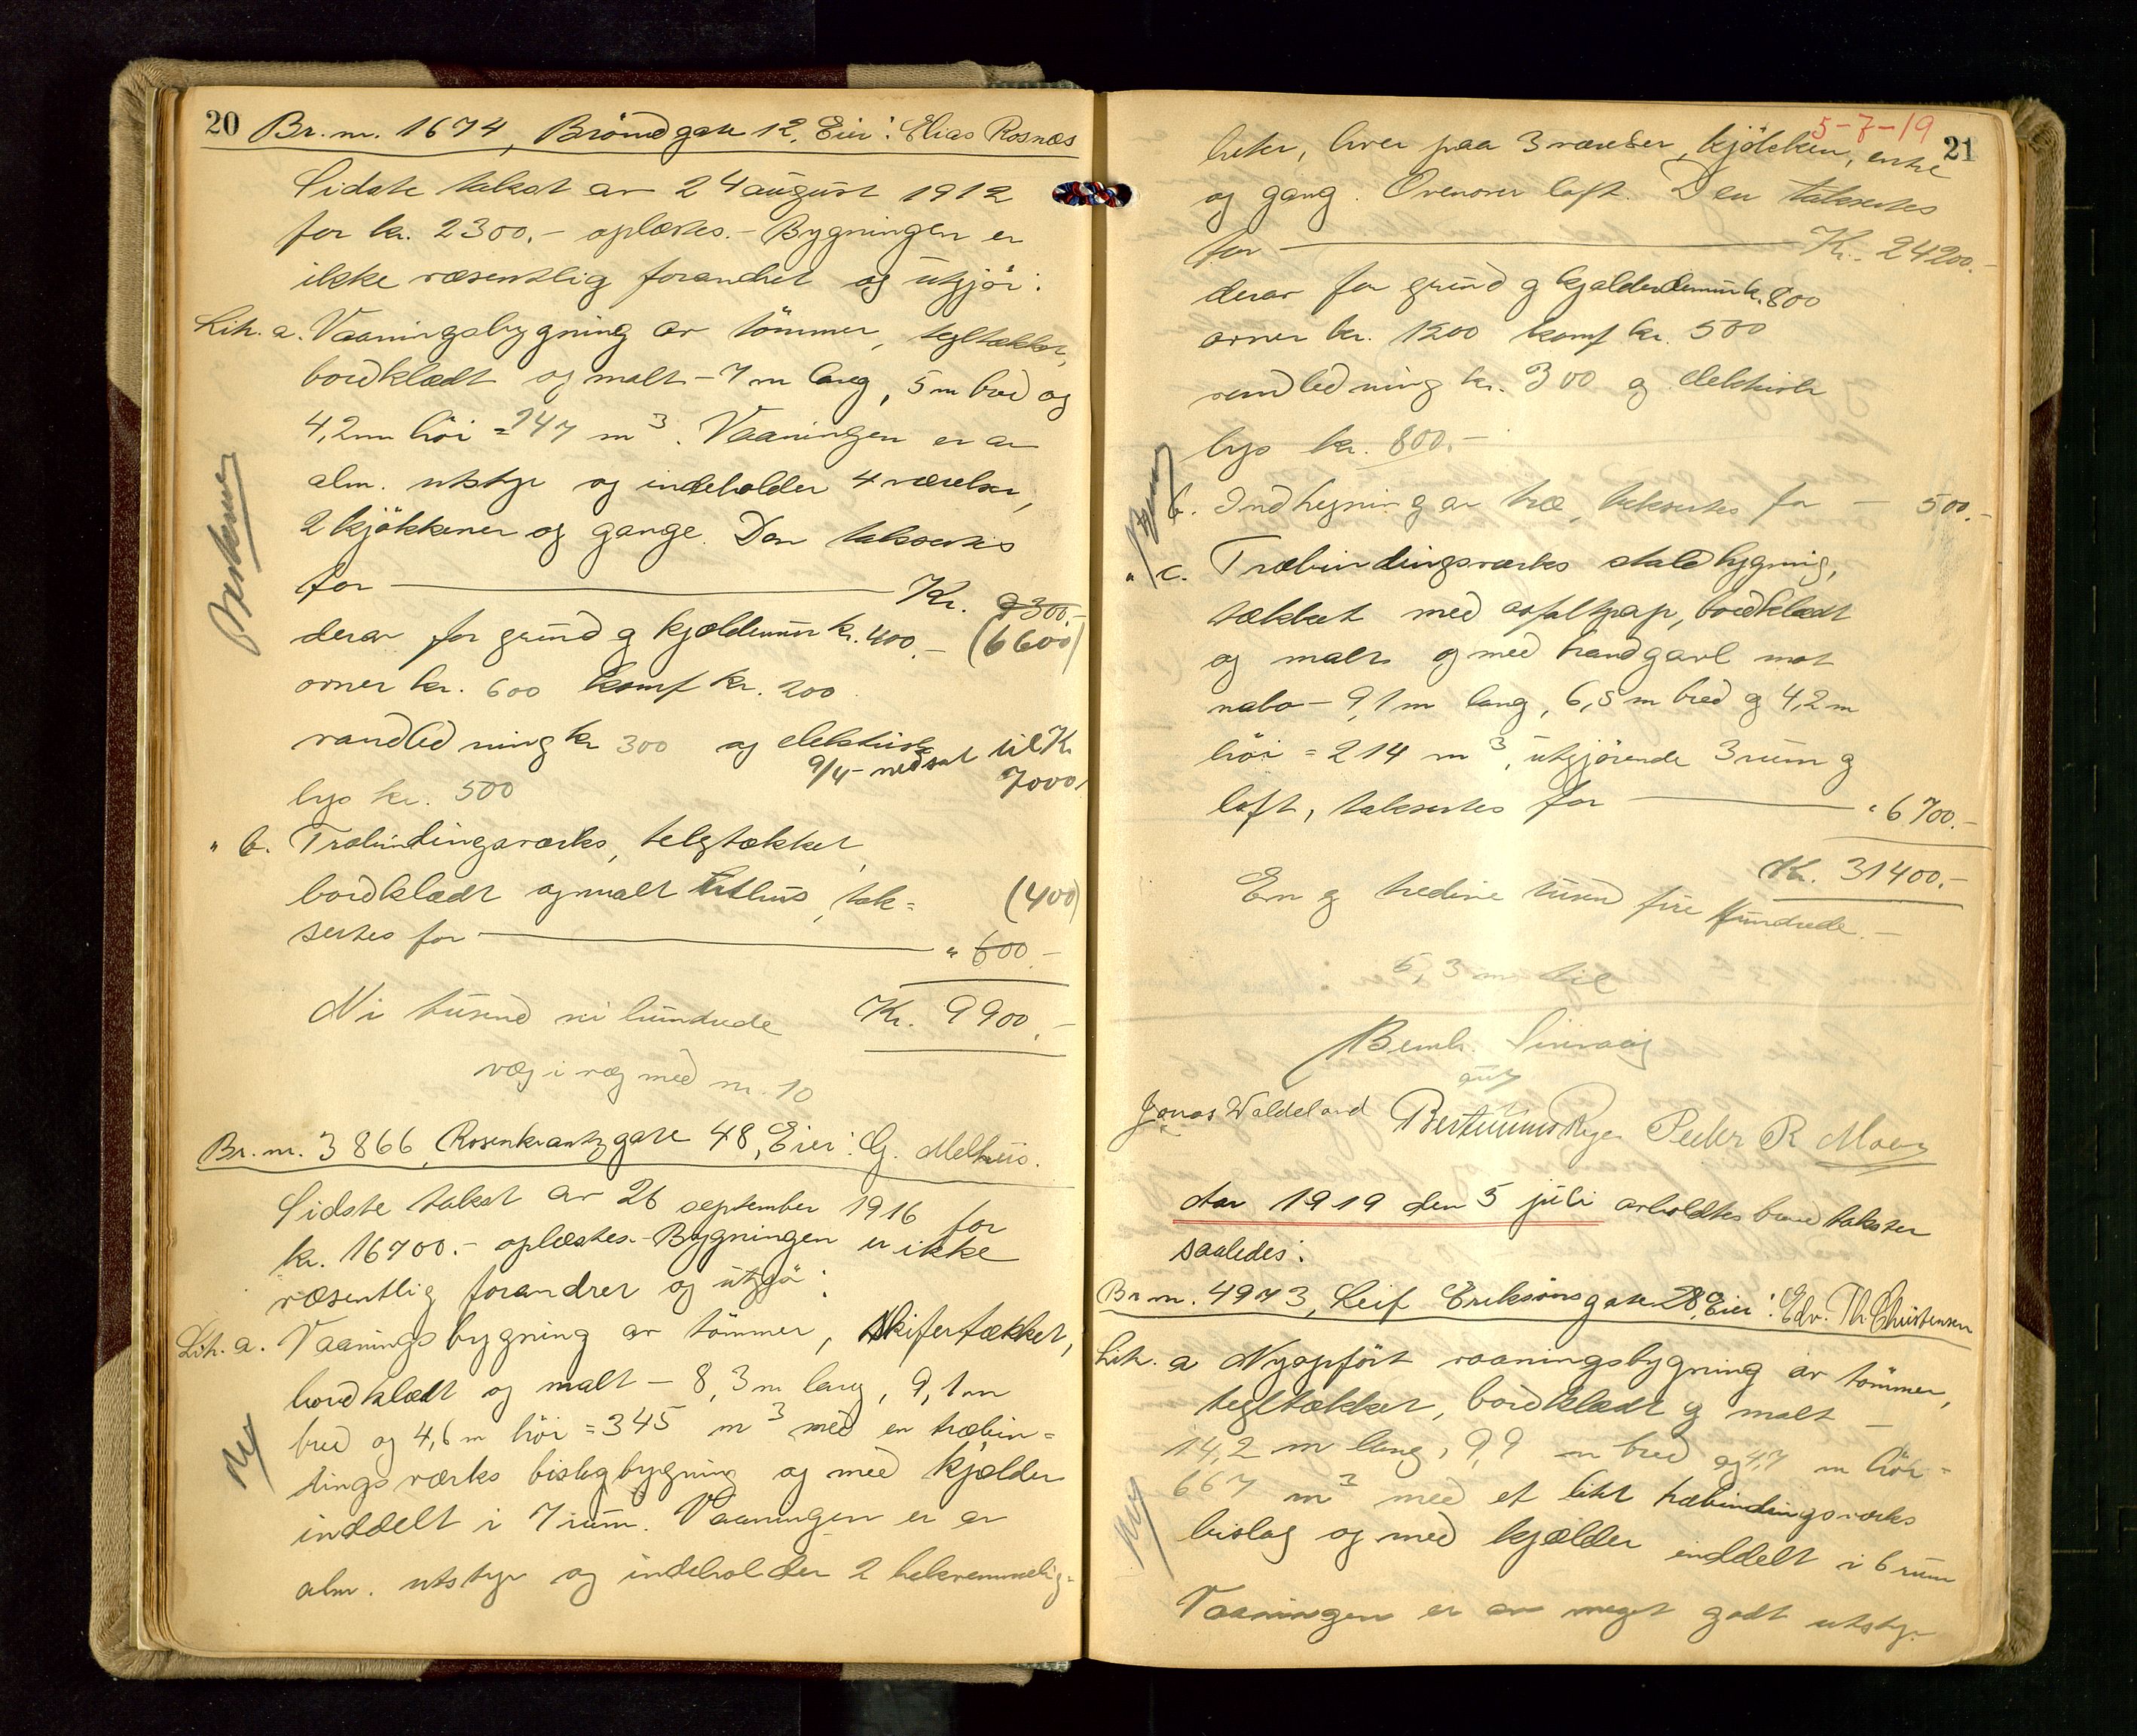 20 Br. nr. 1674, Bröndgate 12, Eier: Elias Rosnæs
Sidste takst av 24 august 1912
for kr. 2300.- oplæstes.- Bygningen er
ikke væsentlig forandret og utgjør:
Lit. a. Vaaningsbygning av tömmer, tegltækket,
bordklædt og malt - 7 m lang, 5 m bred og
4,2 m höi = 147 m3. Vaaningen er av
alm. utstyr og indeholder 4 værelser,
2 kjökkener og gange. Den takseres
for Kr. 9300.-
derav for grund g kjældermur kr. 400.- (6600)
ovner kr. 600 komf kr. 200
vandledning kr 300 og elektrisk
9/4- nedsat til Kr
7000,
lys kr. 500
" b. Træbindingsværks, telgtækket,
bordklædt og malt Uthus, tak= (400)
sertes for " 600.-
Ni tusend ni hundrede Kr. 9900.-
væg i væg med nr. 10
Br. nr. 3866, Rosenkrantzgate 48, Eier: G. Melhuis.
Sidste takst av 26 september 1916 for
kr. 16700.- oplæstes.- Bygningen er ikke
væsentlig forandret og utgjø:
Lit. a. Vaaningsbygning av tömmer, skifertækket,
bordklædt og malt - 8,3 m lang, 9,1 m
bred og 4,6 m höi = 345 m3 med en træbin=
dingsværks bislagbygning og med kjælder
inddelt i 7 rum. Vaaningen er av
alm. utstyr og indeholder 2 bekvemmelig=
Ny
5-7-19 21
heter, hver paa 3 værelser, kjökken, entre
og gang. Ovenover loft. Den takseres
for Kr. 24200.-
derav for grund g kjældermur kr. 800
ovner kr. 1200 komf kr. 500
vandledning kr. 300 g elektrisk
lys kr. 800.-
b. Indhegning av træ, takseres for - 500.-
" c. Træbindingsværks staldbygning,
tækket med asfaltpap, bordklædt
og malt og med brandgavl mot
nabo - 9,1 m lang, 6,5 m bred g 4,2 m
höi = 214 m3, utgjörende 3 rum g
loft, takseres for " 6700.-
Kr. 31400.-
En g tredive tusend fire hundrede.-
5,3 m til
Jonas Waldeland Peder R Moen
Aar 1919 den 5 juli avholdtes brandtakster
saaledes:
Br nr. 4973, Leif Eriksöns gate 28, Eier: Edv. Th. Christensen
Lit. a Nyopfört vaaningsbygning av tömmer,
tegltækket, bordklædt g malt -
14,2 m lang, 9,9 m bred og 4,7 m höi =
667 m3 med et litet træbindingsværks
bislag og med kjælder inddelt i 6 rum
Vaaningen er av meget godt utstyr
Ny